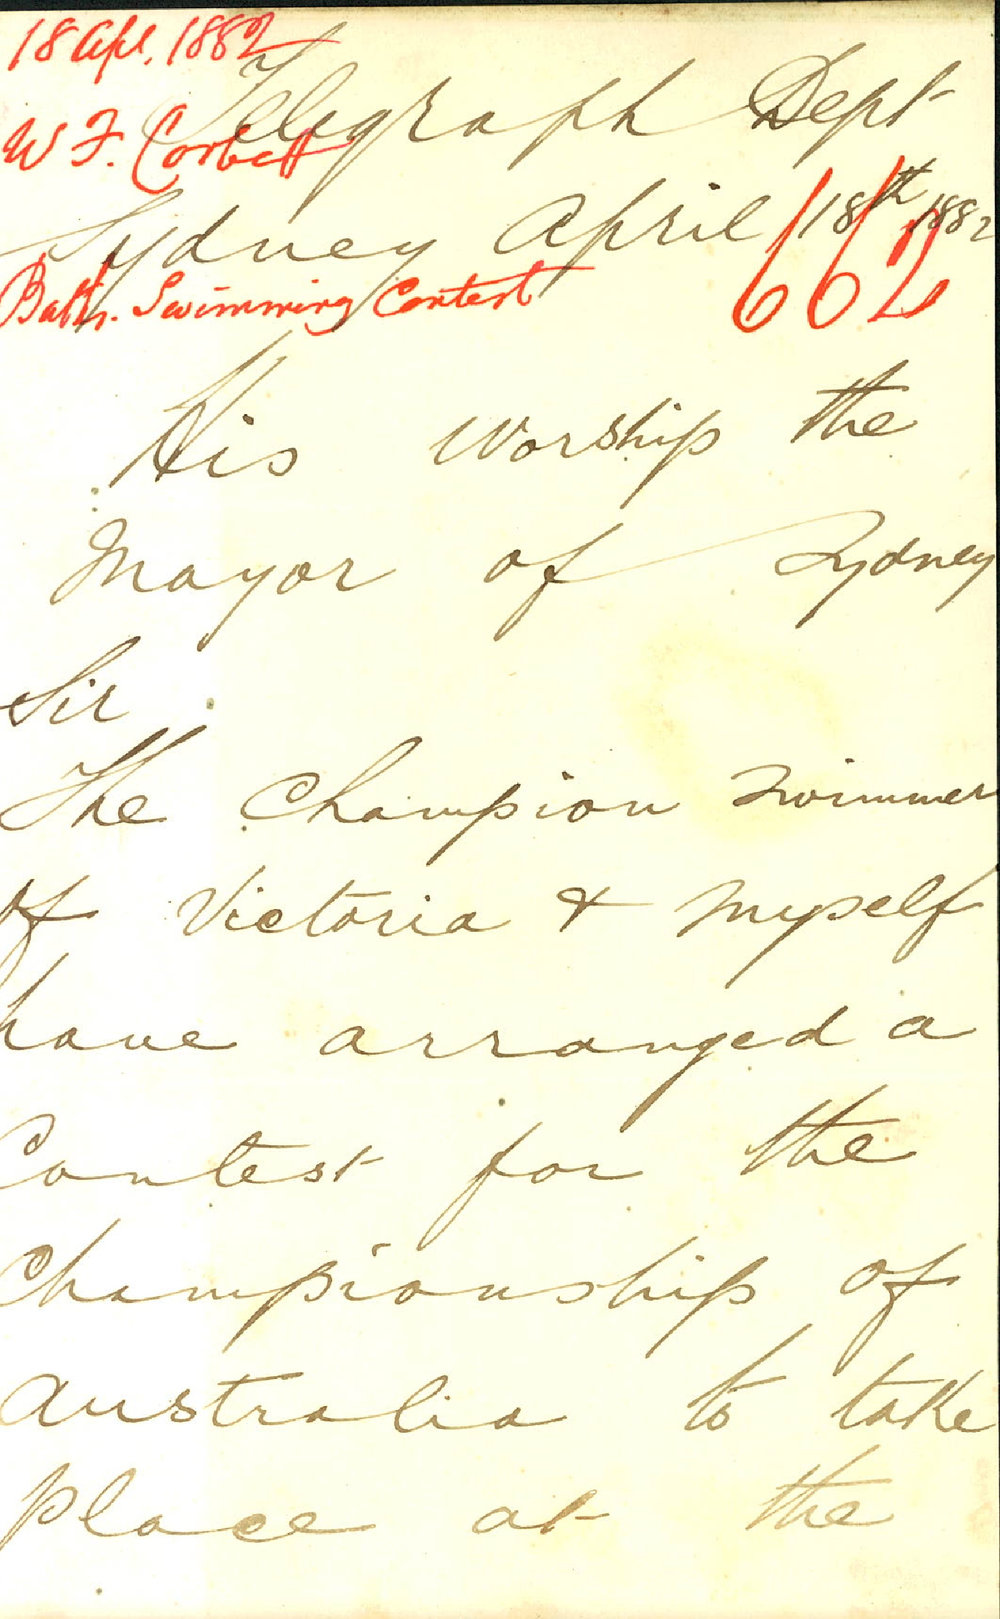 18 Apl. 1882
Telegraph Dept
W F. Corbett
Sydney April 18th 1882
662
Baths. Swimming Contest
His Worship the
Mayor of Sydney
Sir
The Champion Swimmer
of Victoria & myself
have arranged a
Contest for the
Championship of
Australia to take
place at the